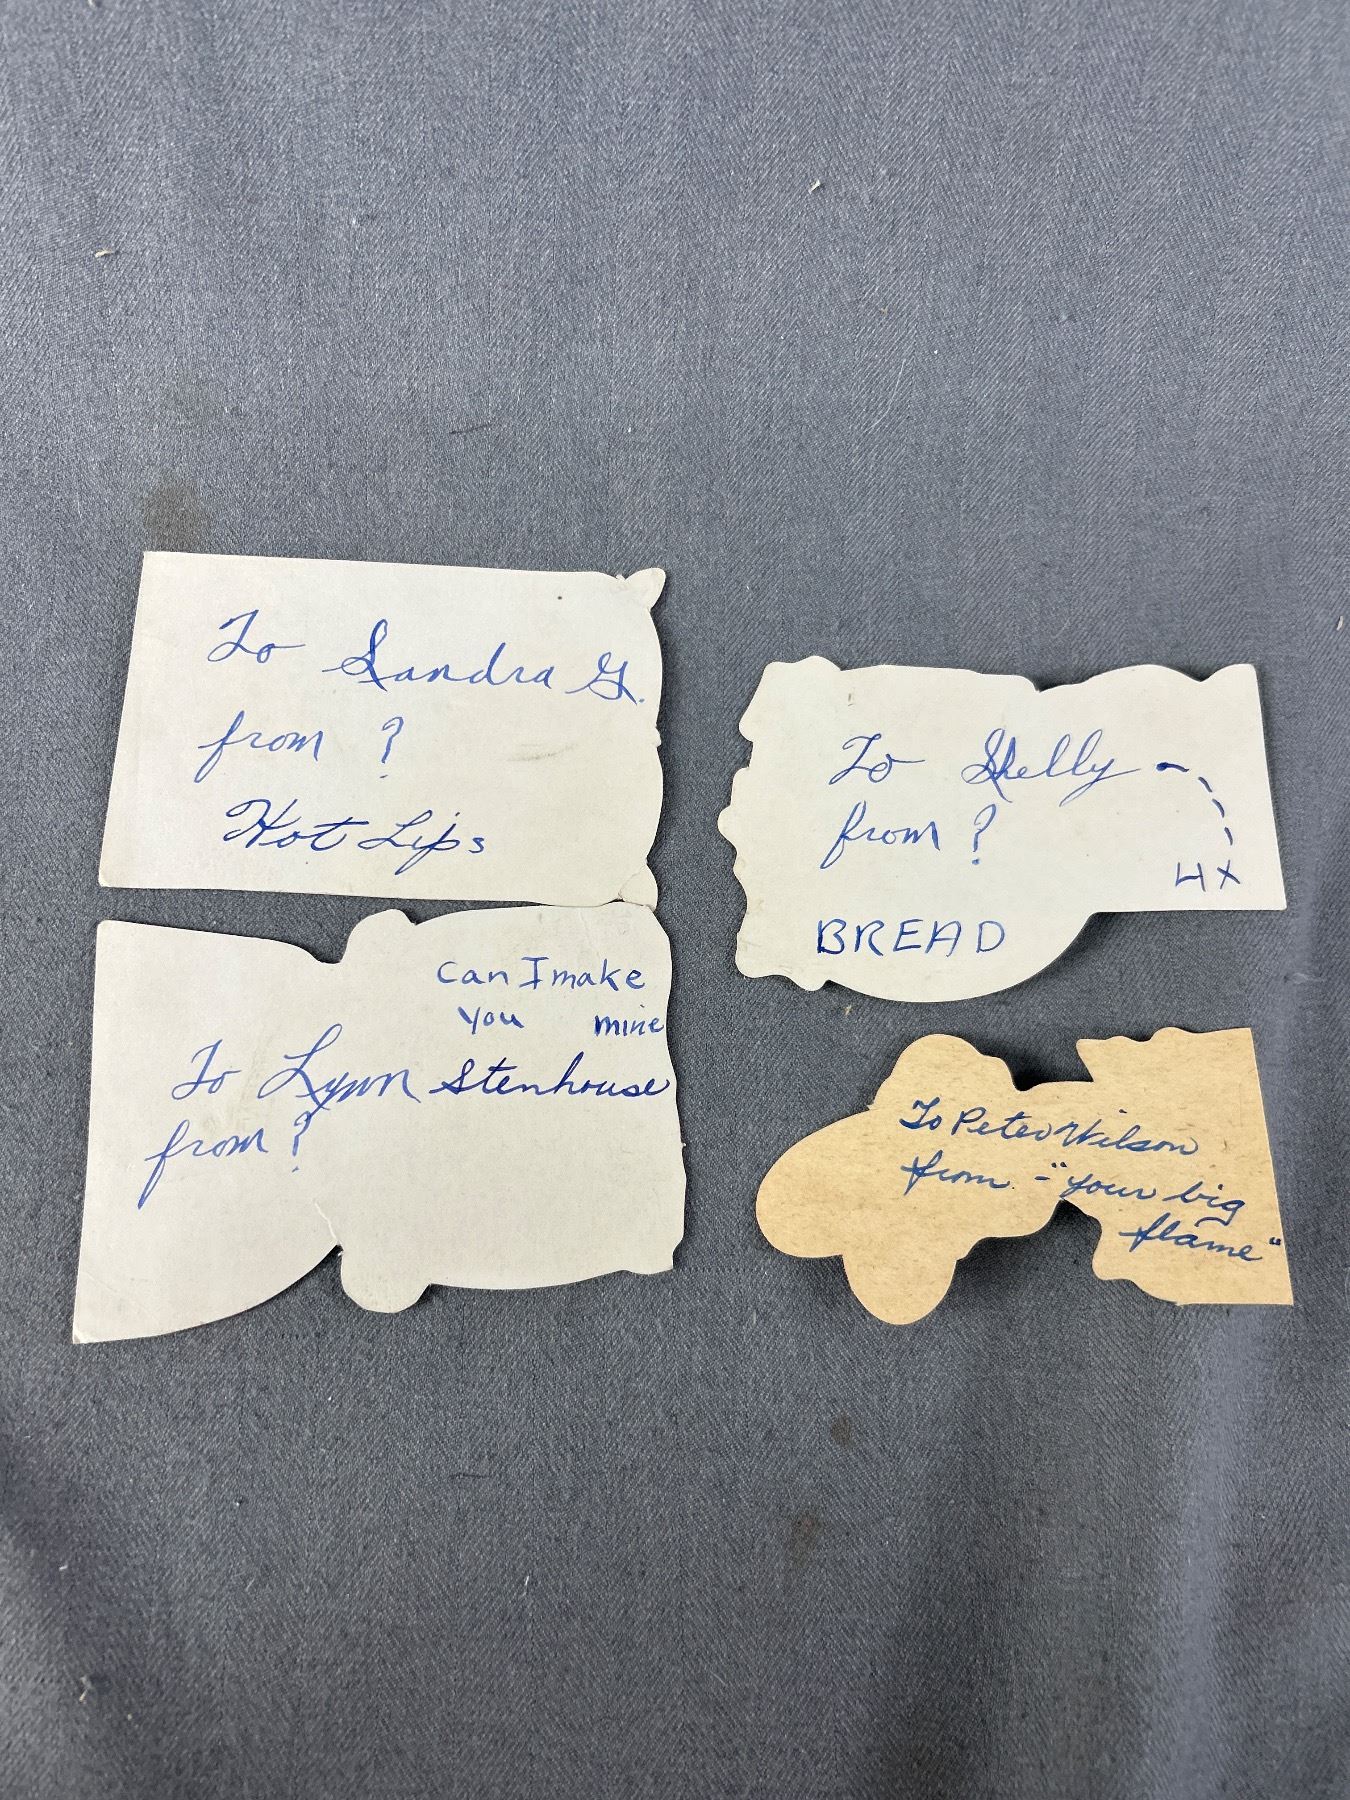 To Sandra G.
from ?
Hot Lips
To Shelly
from ?
4X
BREAD
Can I make
you mine
To Lynn Stenhouse
from ?
To Peter Wilson
from - "your big
flame"